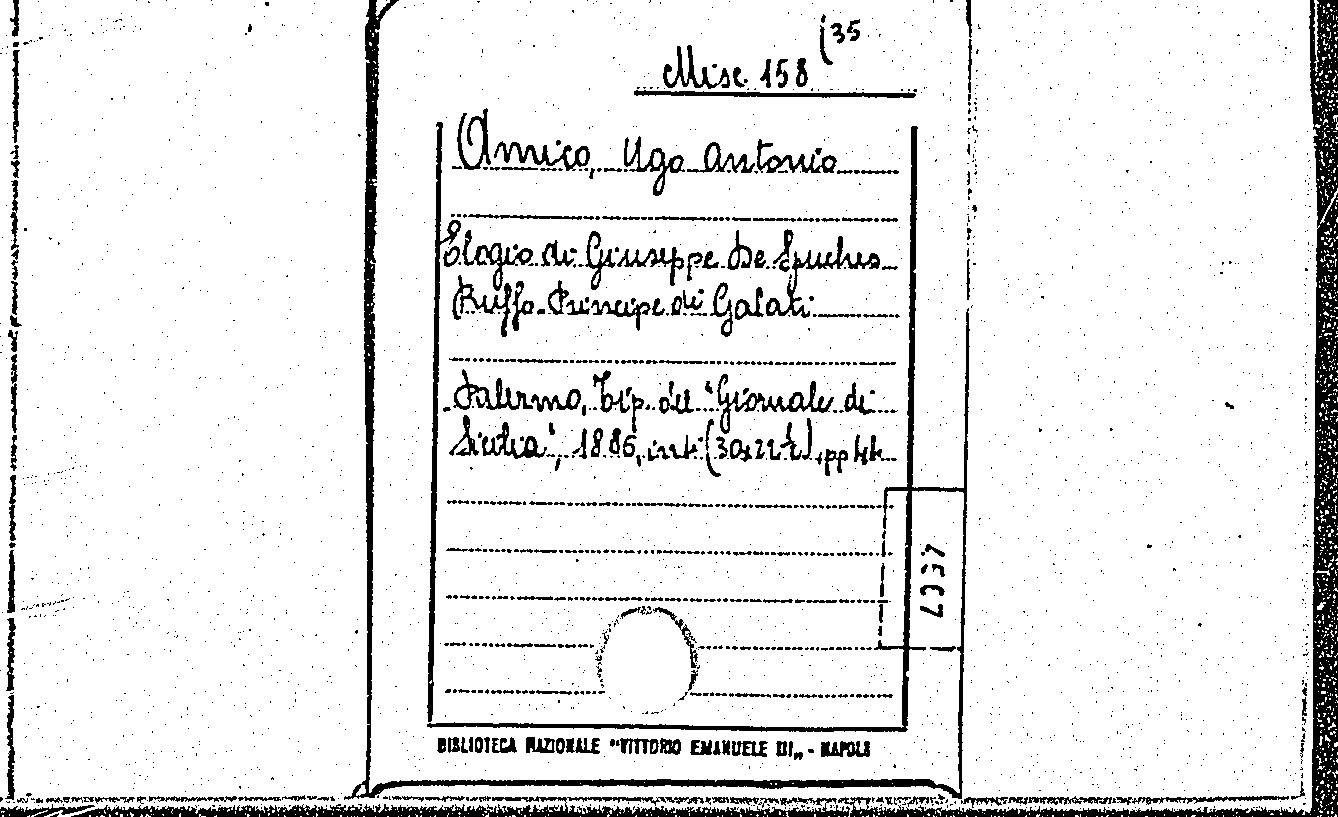 (35
Misc. 158
Amico, Ugo Antonio
Elogio di Giuseppe De Spuches
Ruffo Principe di Galati
Palermo, Tip. del "Giornale di
Sicilia", 1885, in 4° (30x22½), pp 44
BIBLIOTECA NAZIONALE "VITTORIO EMANUELE III„ - NAPOLI